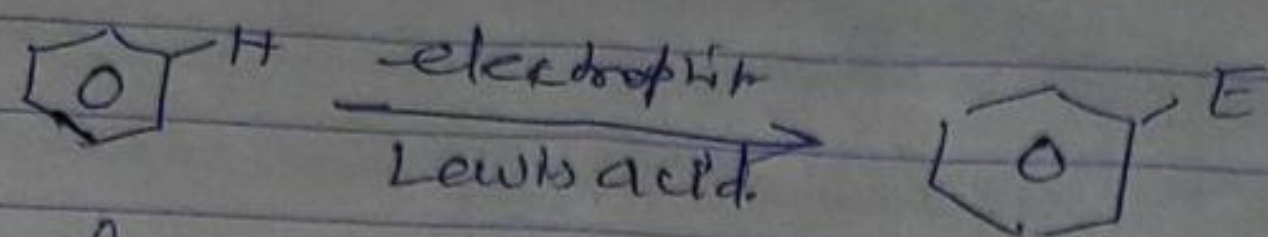 H electrophile E
Lewis acid.